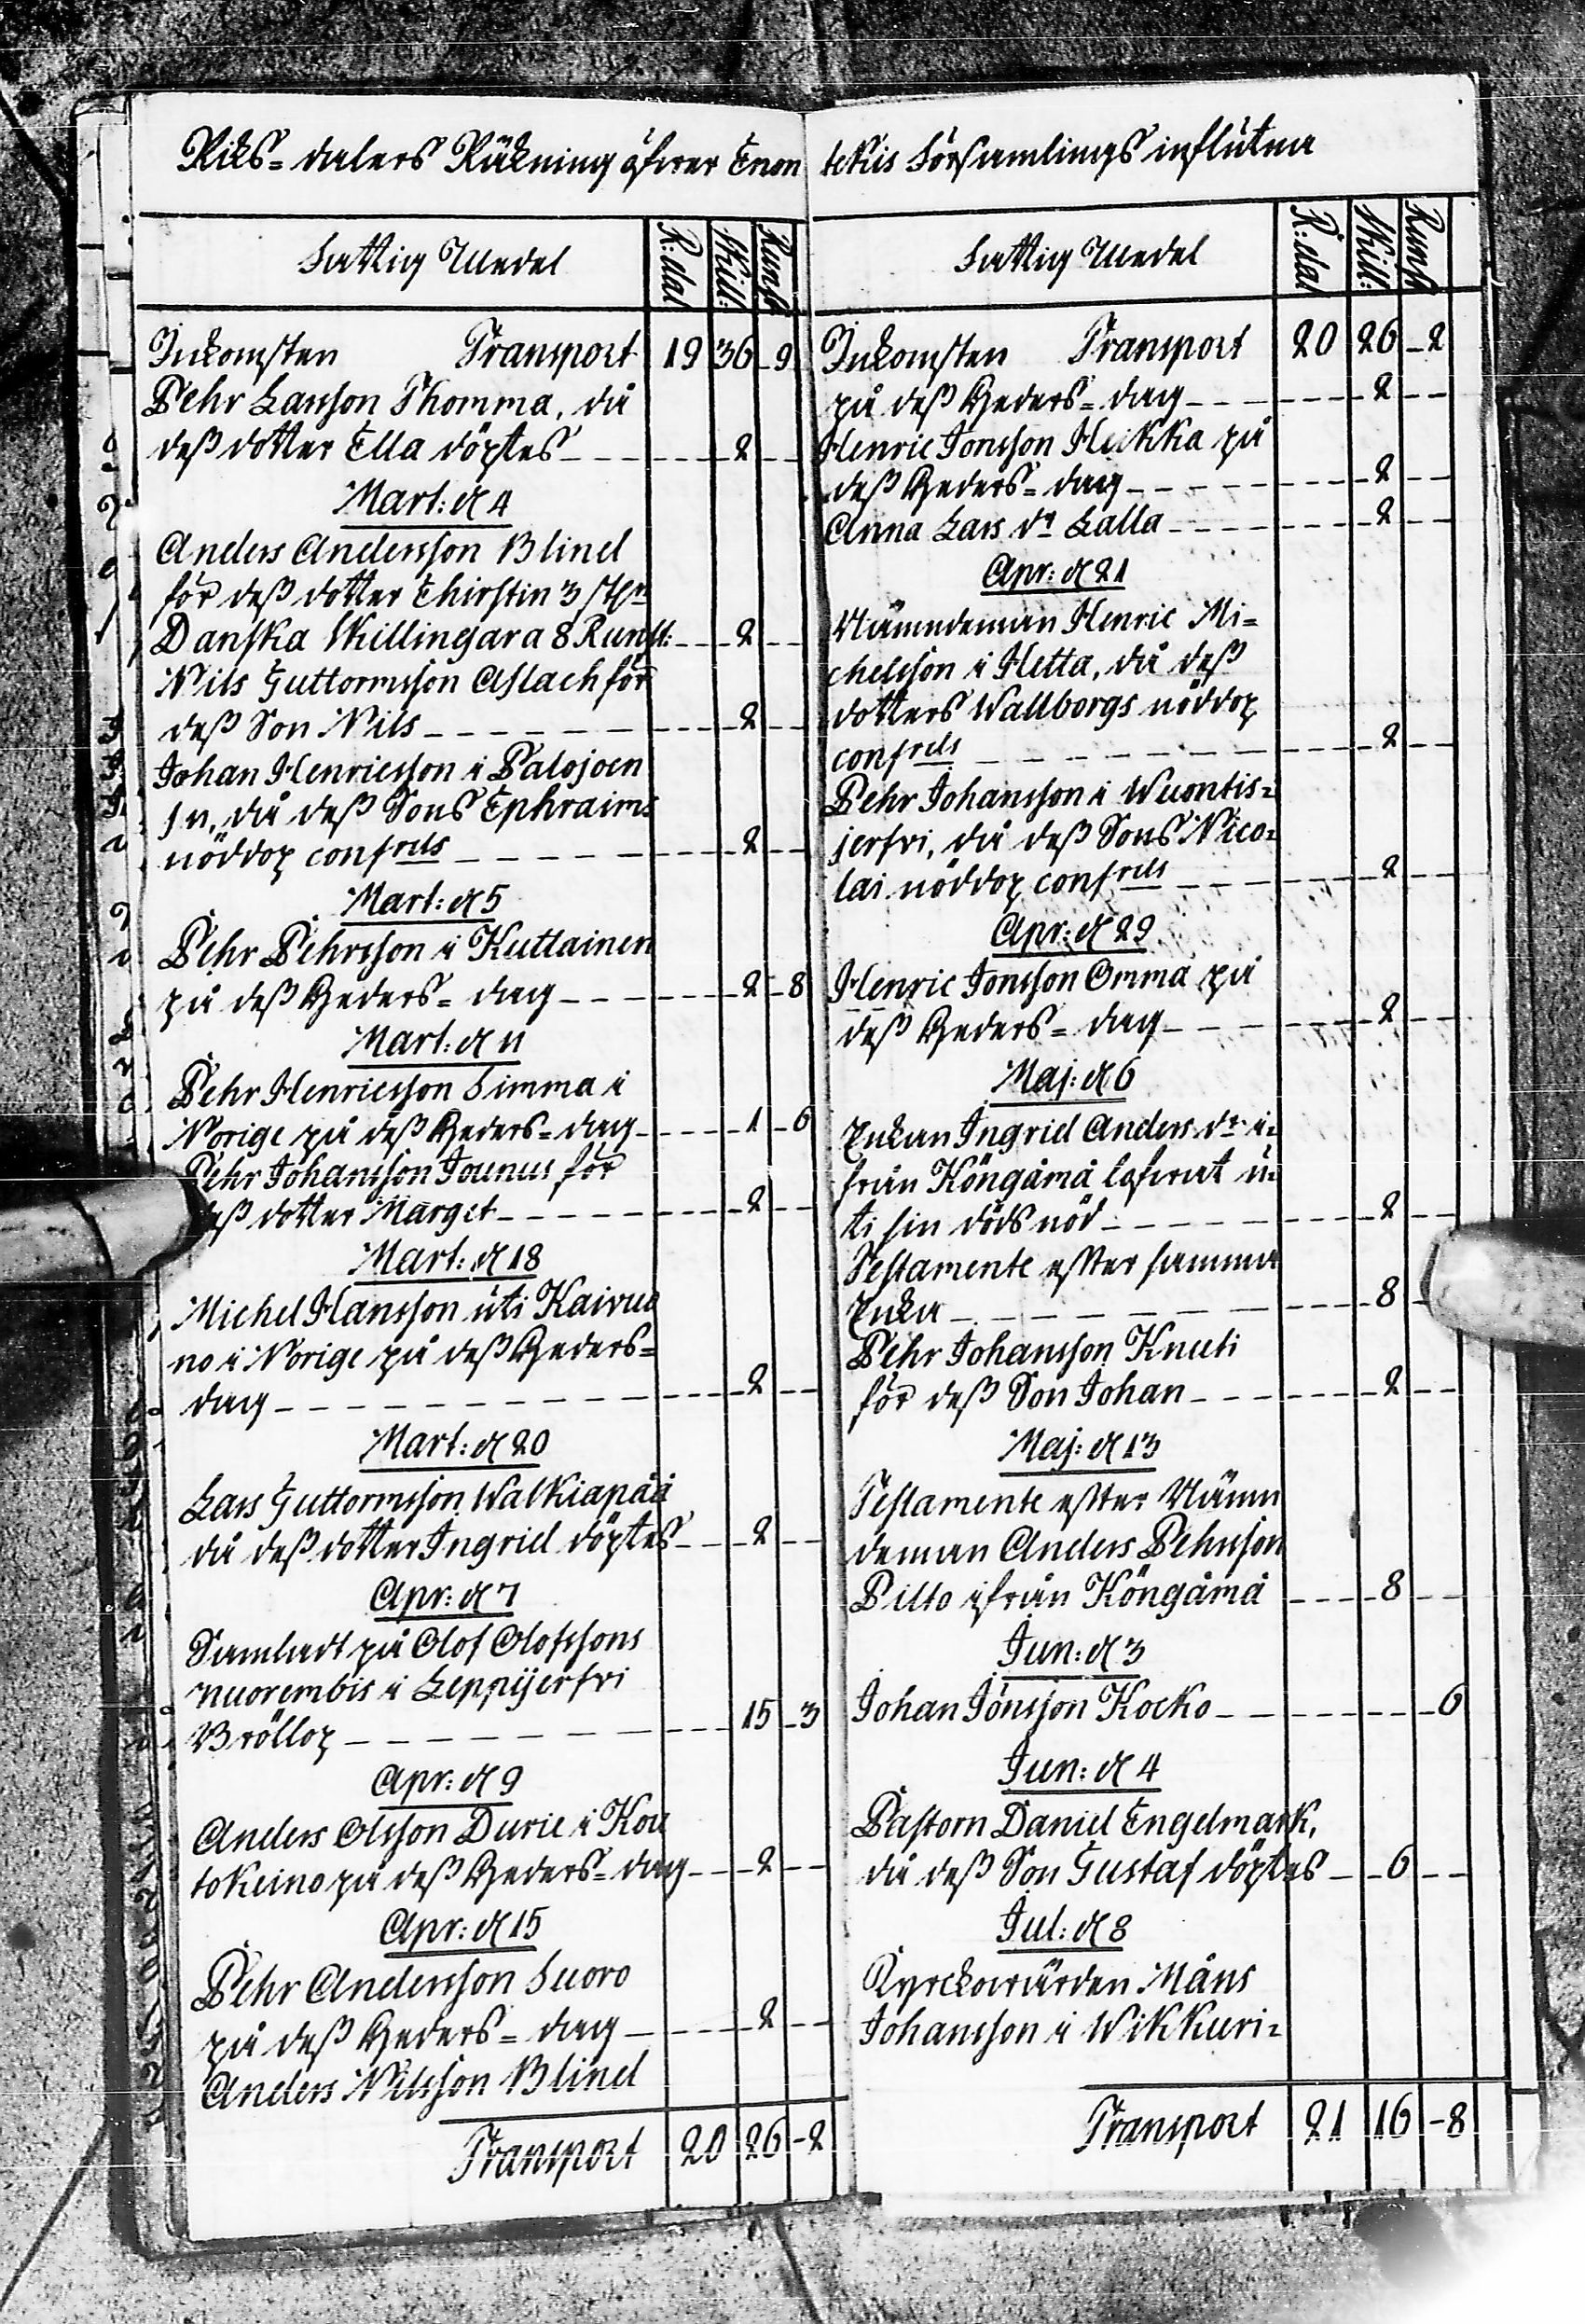 Riks=dalers Räkning öfwer Enon
tekis Församlings influtna
Fattig Medel R:dal Skill: Runst
Inkomsten Transport 19 36 - 9
Pehr Larsson Thomma, då
dess dotter Ella döptes - - - 2 - -
Mart: d 4
Anders Andersson Blind
för dess dotter Chirstin 3 st.
Danska Skillingar a 8 Runst: - - 2 - -
Nils Guttormsson Aslach för
dess Son Nils - - - 2 - -
Johan Henricsson i Palojoen
su, då dess Sons Ephraims
nöddop confrels - - - 2 - -
Mart: d 5
Pehr Pehrsson i Kuttainen
på dess Heders=dag - - - 2 - 8
Mart: d 11
Pehr Henricsson Simma i
Norige på dess Heders=dag - - - 1 - 6
Pehr Johansson Jounus för
dess dotter Marget - - - 2 - -
Mart: d 18
Michel Hansson uti Kaivuo
no i Norige på dess Heders=
dag - - - 2 - -
Mart: d 20
Lars Guttormsson Walkiapää
då dess dotter Ingrid döptes - - - 2 - -
Apr: d 7
Samladt på Olof Olofssons
nuorembis i Leppijerfvi
Bröllop - - - 15 - 3
Apr: d 9
Anders Olsson Durie i Kou
tokeino på dess Heders=dag - - - 2 - -
Apr: d 15
Pehr Andersson Suoro
på dess Heders=dag - - - 2 - -
Anders Nilsson Blind
Transport 20 26 - 2
Fattig Medel R:dal Skill: Runst
Inkomsten Transport 20 26 - 2
på dess Heders=dag - - - 2 - -
Henric Jonsson Heikka på
dess Heders=dag - - - 2 - -
Anna Lars dr Lalla - - - 2 - -
Apr: d 21
Nämndeman Henric Mi=
chelsson i Hetta, då dess
dotters Wallborgs nöddop
confrels - - - 2 - -
Pehr Johansson i Wuontis=
jerfvi, då dess Sons Nico=
lai nöddop confrels - - - 2 - -
Apr: d 29
Henric Jonsson Omma på
dess Heders=dag - - - 2 - -
Maj: d 6
Enkan Ingrid Anders dr i=
från Köngämä lofwat u=
ti sin döds nöd - - - 2 - -
Testamente efter samma
Enka - - - 8
Pehr Johansson Knuti
för dess Son Johan - - - 2 - -
Maj: d 13
Testamente efter Nämn
deman Anders Pehrsson
Pilto ifrån Köngämä - - - 8 - -
Jun: d 3
Johan Jönsson Kocko - - - 6
Jun: d 4
Pastorn Daniel Engelmark,
då dess Son Gustaf döptes - - 6 - -
Jul: d 8
Kyrckowärden Måns
Johansson i Wikkuri=
Transport 21 16 - 8